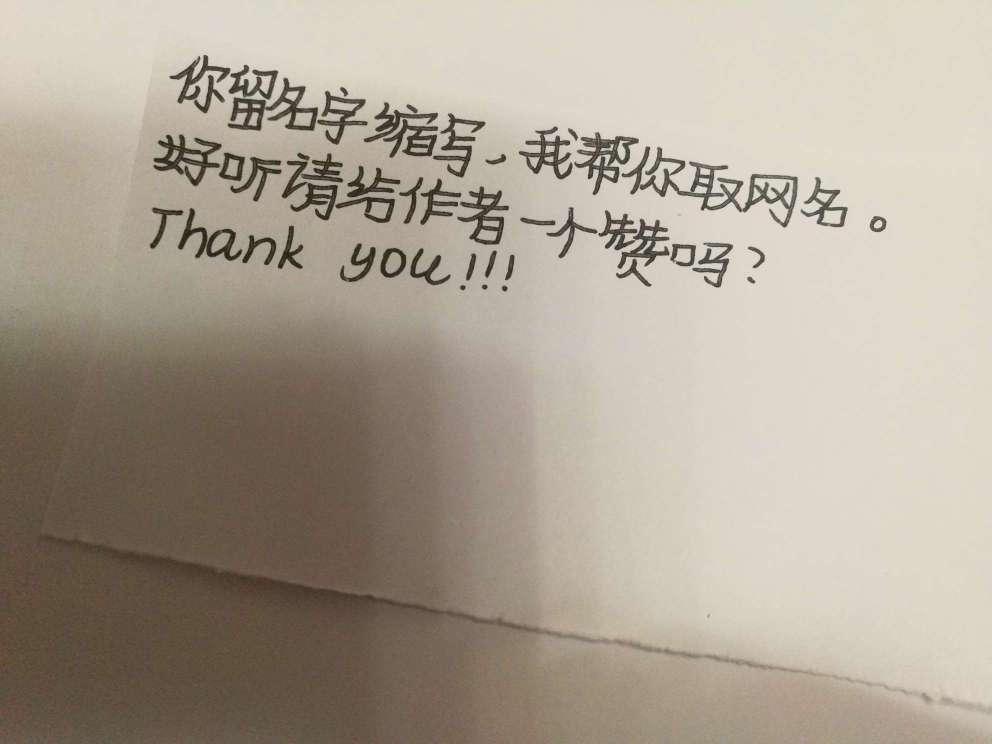 你留名字缩写，我帮你取网名。
好听请给作者一个赞吗？
Thank you!!!